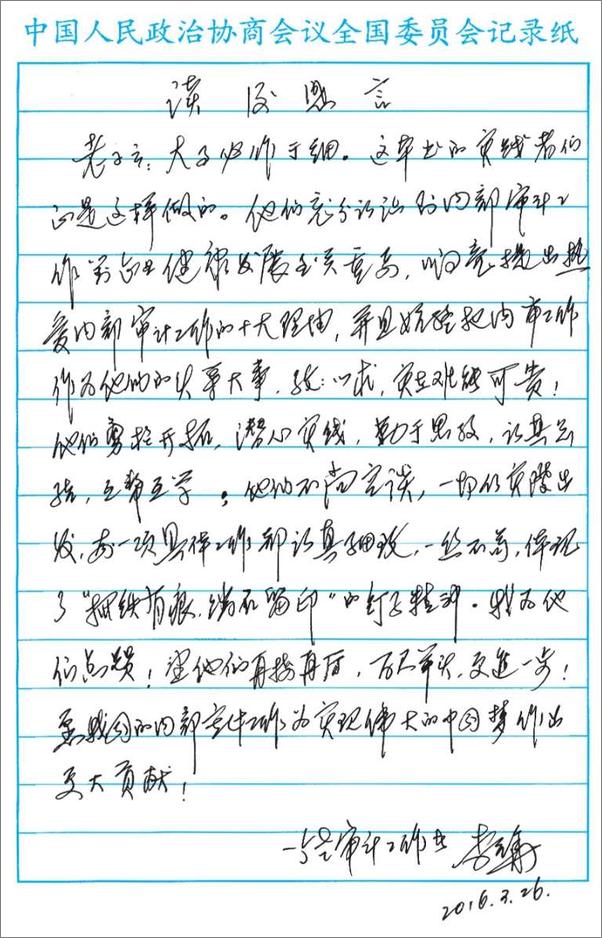 中国人民政治协商会议全国委员会记录纸
读后感言
老子云：大事必作于细。这本书的实践者们
正是这样做的。他们充分认识到内部审计工
作对企业健康发展至关重要，响亮提出热
爱内部审计工作的十大理由，并且始终把内审工作
作为他们的头等大事，孜孜以求，实在难能可贵！
他们勇于开拓，潜心实践，勤于思考，认真总
结，互帮互学；他们不尚空谈，一切从实际出
发，每一项具体工作都认真细致，一丝不苟，体现
了“抓铁有痕，踏石留印”的钉子精神。我为他
们点赞！望他们再接再厉，百尺竿头，更进一步！
为我国的内部审计工作为实现伟大的中国梦作出
更大贡献！
一个老审计工作者 李
2016.3.26.